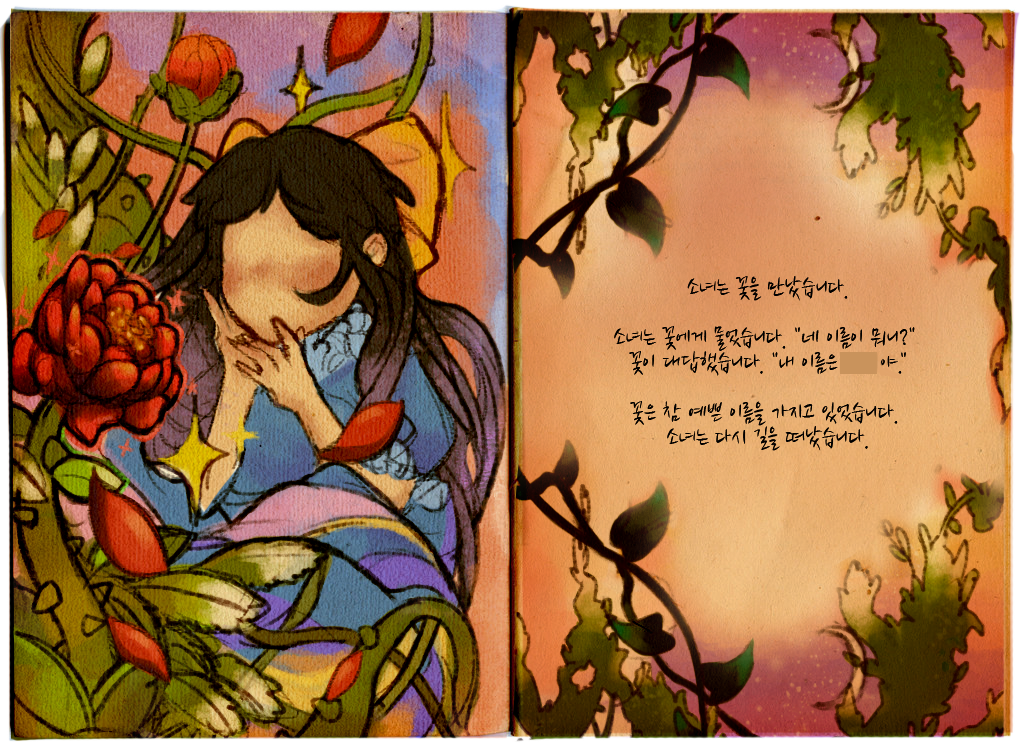 소녀는 꽃을 만났습니다.
소녀는 꽃에게 물었습니다. "네 이름이 뭐니?"
꽃이 대답했습니다. "내 이름은 야."
꽃은 참 예쁜 이름을 가지고 있었습니다.
소녀는 다시 길을 떠났습니다.